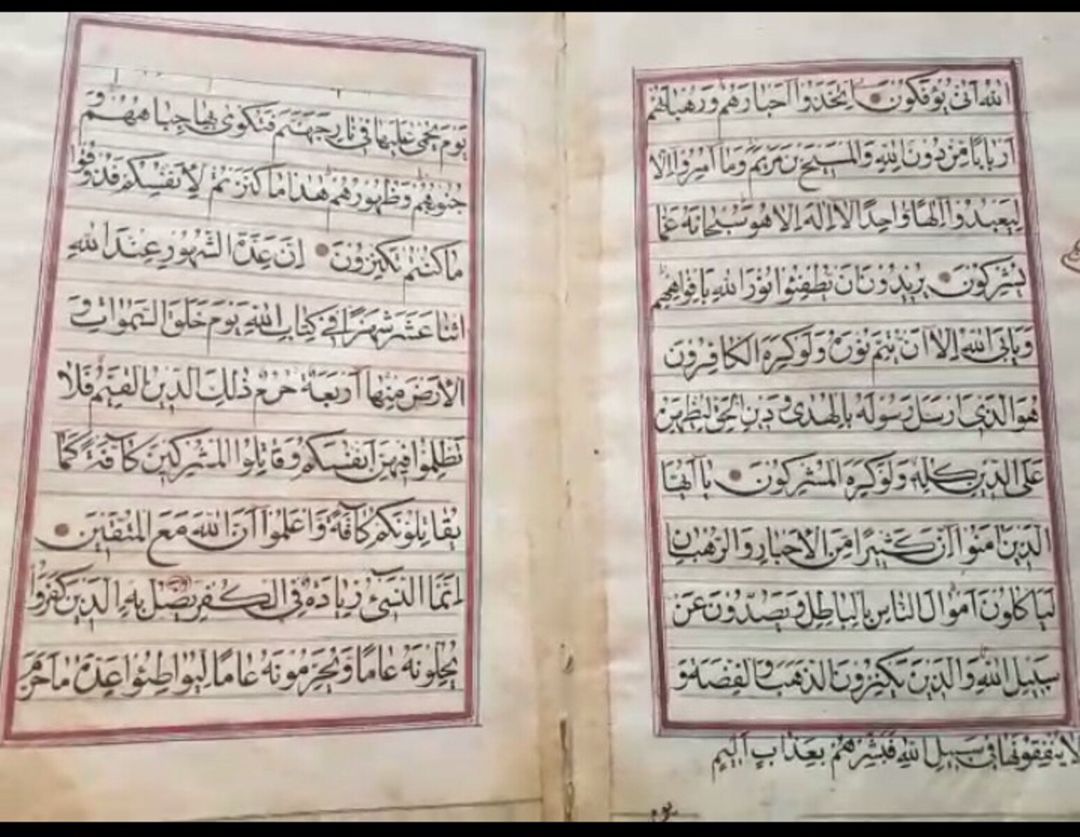 اللهُ أَنّٰى يُؤْفَكُونَ ۝ اِتَّخَذُوا اَحْبَارَهُمْ وَرُهْبَانَهُمْ
اَرْبَابًا مِنْ دُونِ اللهِ وَالْمَسِيحَ بْنَ مَرْيَمَ وَمَا اُمِرُوا اِلَّا
لِيَعْبُدُوا اِلٰهًا وَاحِدًا لَا اِلٰهَ اِلَّا هُوَ سُبْحَانَهُ عَمَّا
يُشْرِكُونَ ۝ يُرِيدُونَ اَنْ يُطْفِئُوا نُورَ اللهِ بِاَفْوَاهِهِمْ
وَيَاْبَى اللهُ اِلَّا اَنْ يُتِمَّ نُورَهُ وَلَوْ كَرِهَ الْكَافِرُونَ
هُوَ الَّذِى اَرْسَلَ رَسُولَهُ بِالْهُدٰى وَدِينِ الْحَقِّ لِيُظْهِرَهُ
عَلَى الدِّينِ كُلِّهِ وَلَوْ كَرِهَ الْمُشْرِكُونَ ۝ يَا اَيُّهَا
الَّذِينَ اٰمَنُوا اِنَّ كَثِيرًا مِنَ الْاَحْبَارِ وَالرُّهْبَانِ
لَيَاْكُلُونَ اَمْوَالَ النَّاسِ بِالْبَاطِلِ وَيَصُدُّونَ عَنْ
سَبِيلِ اللهِ وَالَّذِينَ يَكْنِزُونَ الذَّهَبَ وَالْفِضَّةَ وَ
لَا يُنْفِقُونَهَا فِى سَبِيلِ اللهِ فَبَشِّرْهُمْ بِعَذَابٍ اَلِيمٍ
يوم
يَوْمَ يُحْمٰى عَلَيْهَا فِى نَارِ جَهَنَّمَ فَتُكْوٰى بِهَا جِبَاهُهُمْ وَ
جُنُوبُهُمْ وَظُهُورُهُمْ هٰذَا مَا كَنَزْتُمْ لِاَنْفُسِكُمْ فَذُوقُوا
مَا كُنْتُمْ تَكْنِزُونَ ۝ اِنَّ عِدَّةَ الشُّهُورِ عِنْدَ اللهِ
اثْنَا عَشَرَ شَهْرًا فِى كِتَابِ اللهِ يَوْمَ خَلَقَ السَّمٰوَاتِ وَ
الْاَرْضَ مِنْهَا اَرْبَعَةٌ حُرُمٌ ذٰلِكَ الدِّينُ الْقَيِّمُ فَلَا
تَظْلِمُوا فِيهِنَّ اَنْفُسَكُمْ وَقَاتِلُوا الْمُشْرِكِينَ كَآفَّةً كَمَا
يُقَاتِلُونَكُمْ كَآفَّةً وَاعْلَمُوا اَنَّ اللهَ مَعَ الْمُتَّقِينَ ۝
اِنَّمَا النَّسِىءُ زِيَادَةٌ فِى الْكُفْرِ يُضَلُّ بِهِ الَّذِينَ كَفَرُوا
يُحِلُّونَهُ عَامًا وَيُحَرِّمُونَهُ عَامًا لِيُوَاطِئُوا عِدَّةَ مَا حَرَّمَ